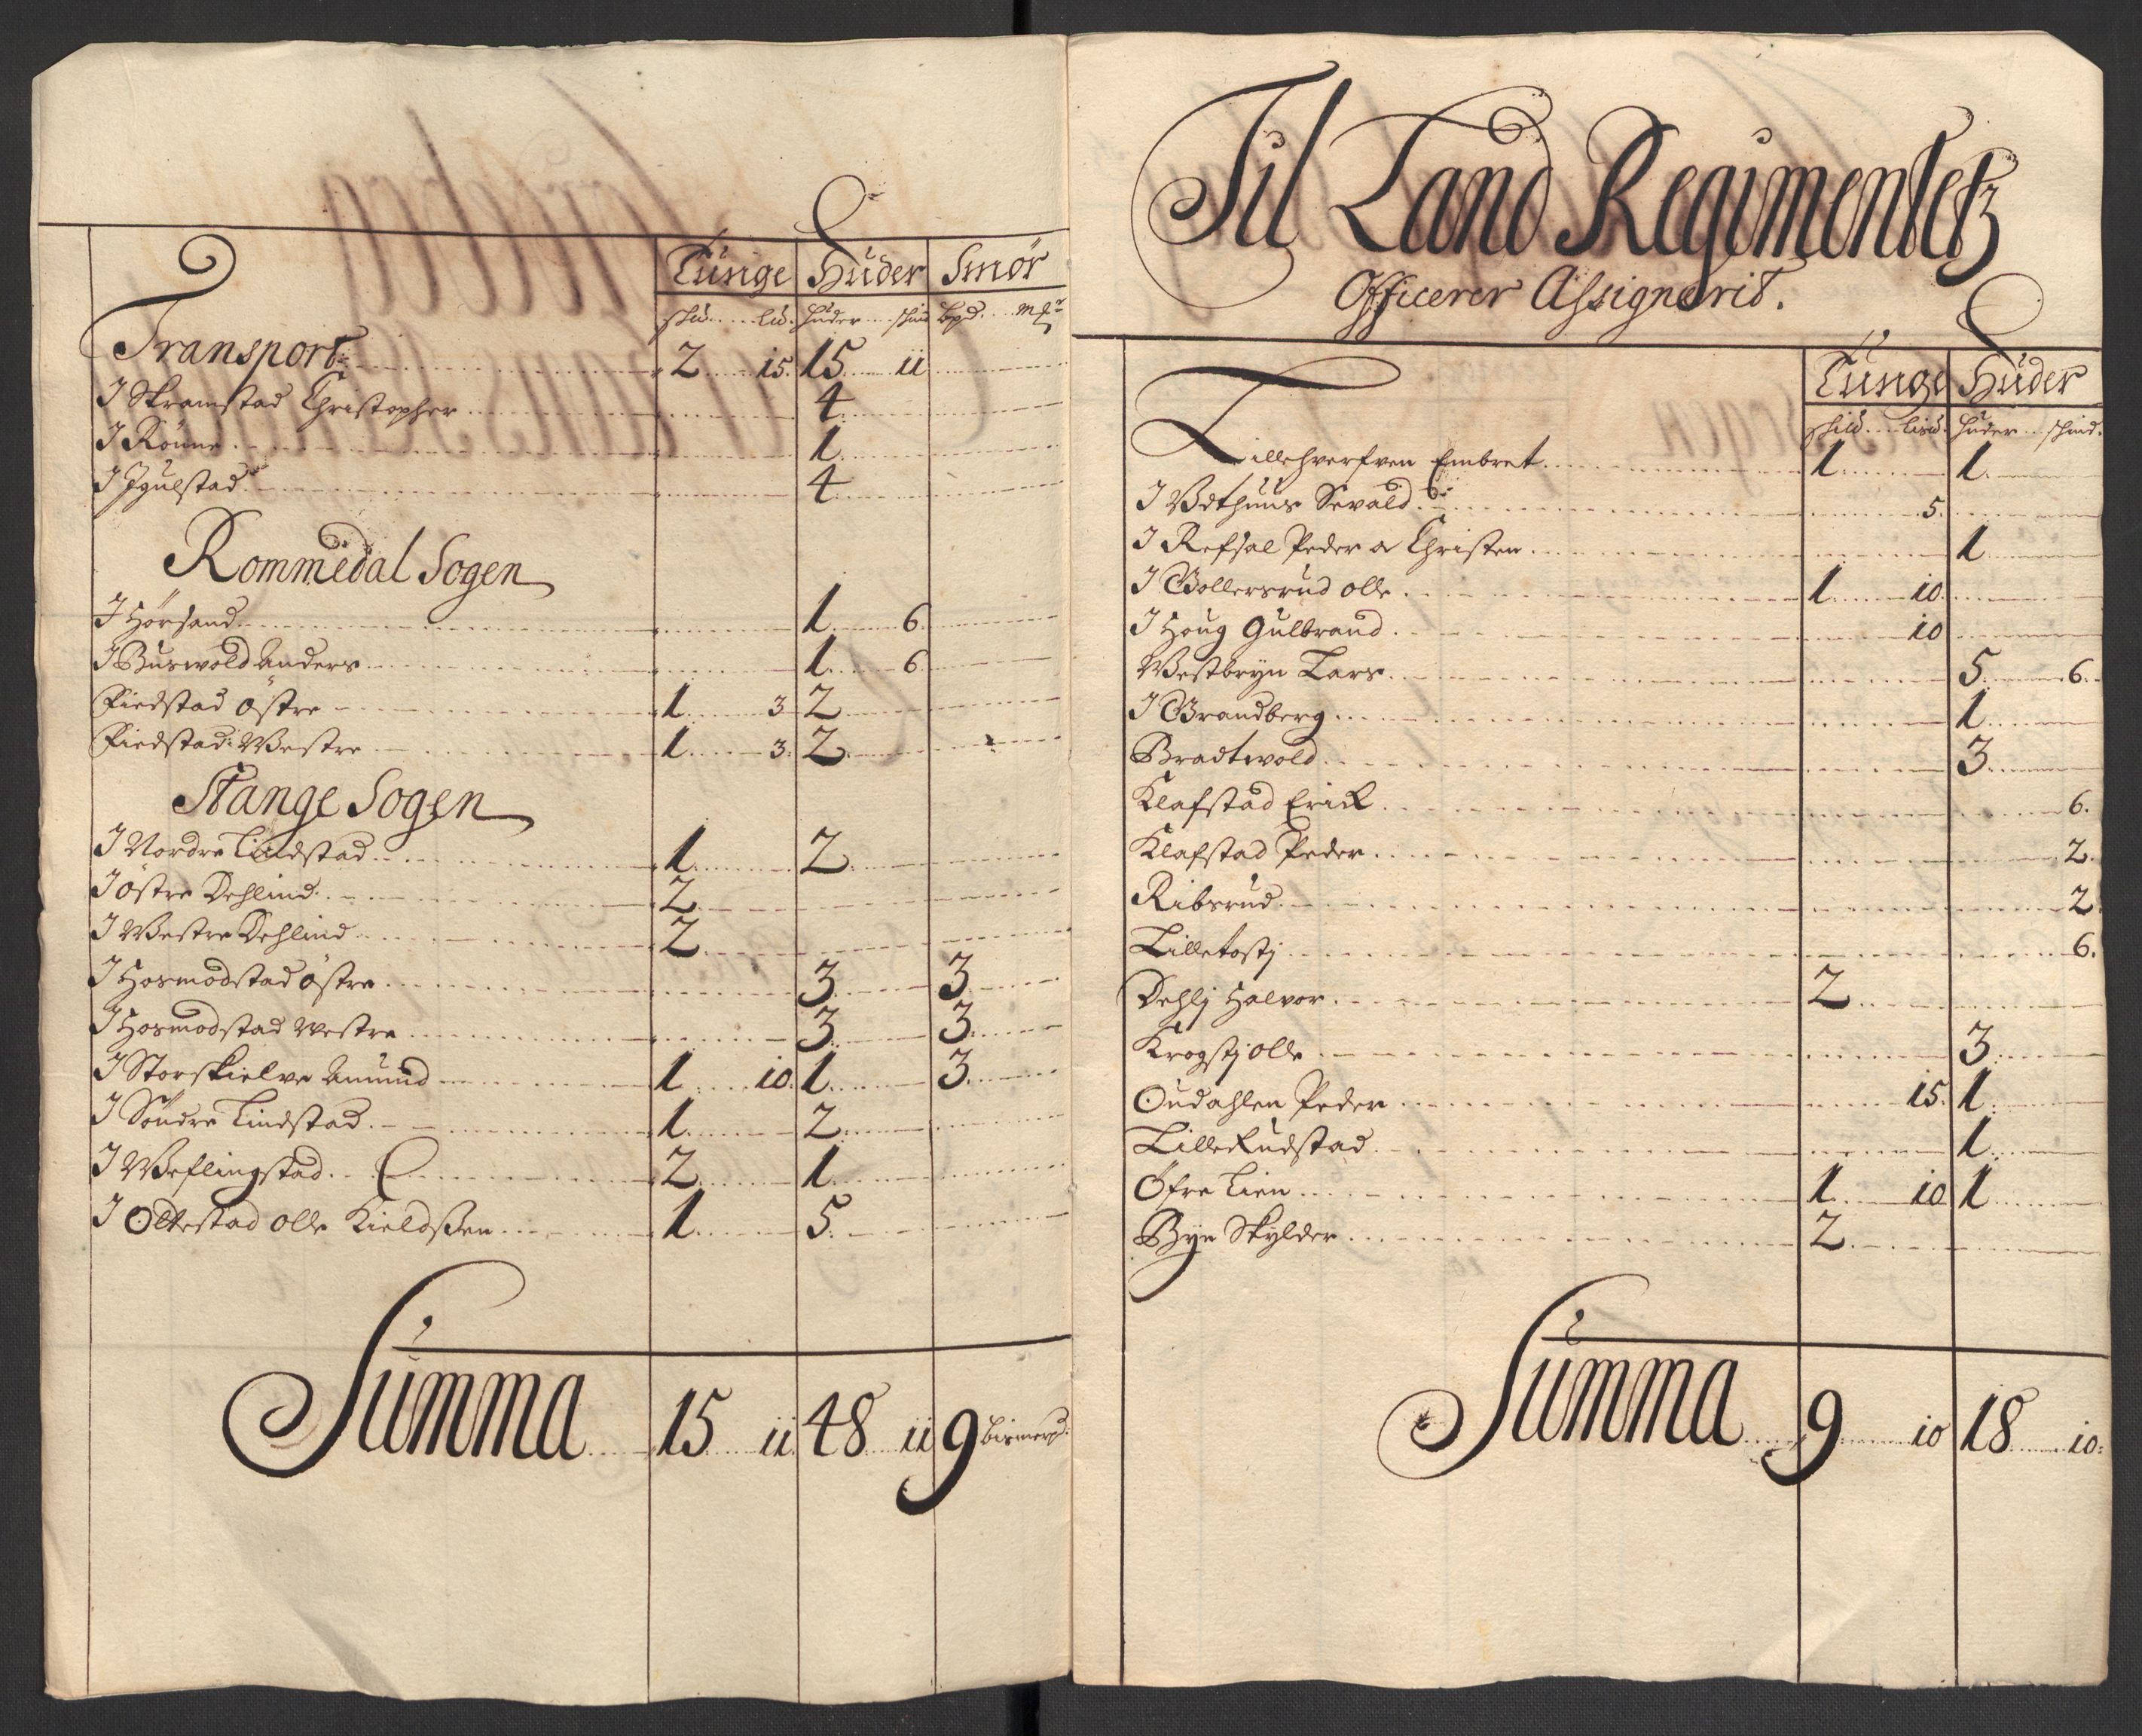 Tünge Hüder Smør
skd. lid. hüder skind bpd. mk
Transport 2 15 15 11
I Skramstad Christopher 4
I Rönne 1
I Jgülstad 4
Rommedal Sogen
I Hörsand 1 6
I Buswold Anders 1 6
Fiedstad östre 1 3 2
Fiedstad Westre 1 3 2
Stange Sogen
I Nordre Lindstad 1 2
I östre Dehlind 2
I Westre Dehlind 2
I Hosmodstad östre 3 3
I Hosmodstad westre 3 3
I Storskielve Amund 1 10 1 3
I Söndre Lindstad 1 2
I Weflingstad 2 1
I Ottestad Olle Kieldßen 1 5
Summa 15 11 48 11 9 bismerpd.
Til Land Regimentetz
Officerer Assignerit.
Tünge Hüder
skid. lisd. hüder skind.
Lillehverfven Embret 1 1
I Vdthuus Sevald 5
I Refsal Peder og Christen 1
I Bollersrud Olle 1 10
I Houg Gulbrand 10
Westbryn Lars 5 6
I Brandberg 1
Bradtwold 3
Klafstad Erick 6
Klafstad Peder 2
Ribsrud 2
Lilletostj 6
Dehlj Halvor 2
Krogstj Olle 3
Oudahlen Peder 15 1
Lille Rudstad 1
Öfre Lien 1 10 1
Bye Skylder 2
Summa 9 10 18 10